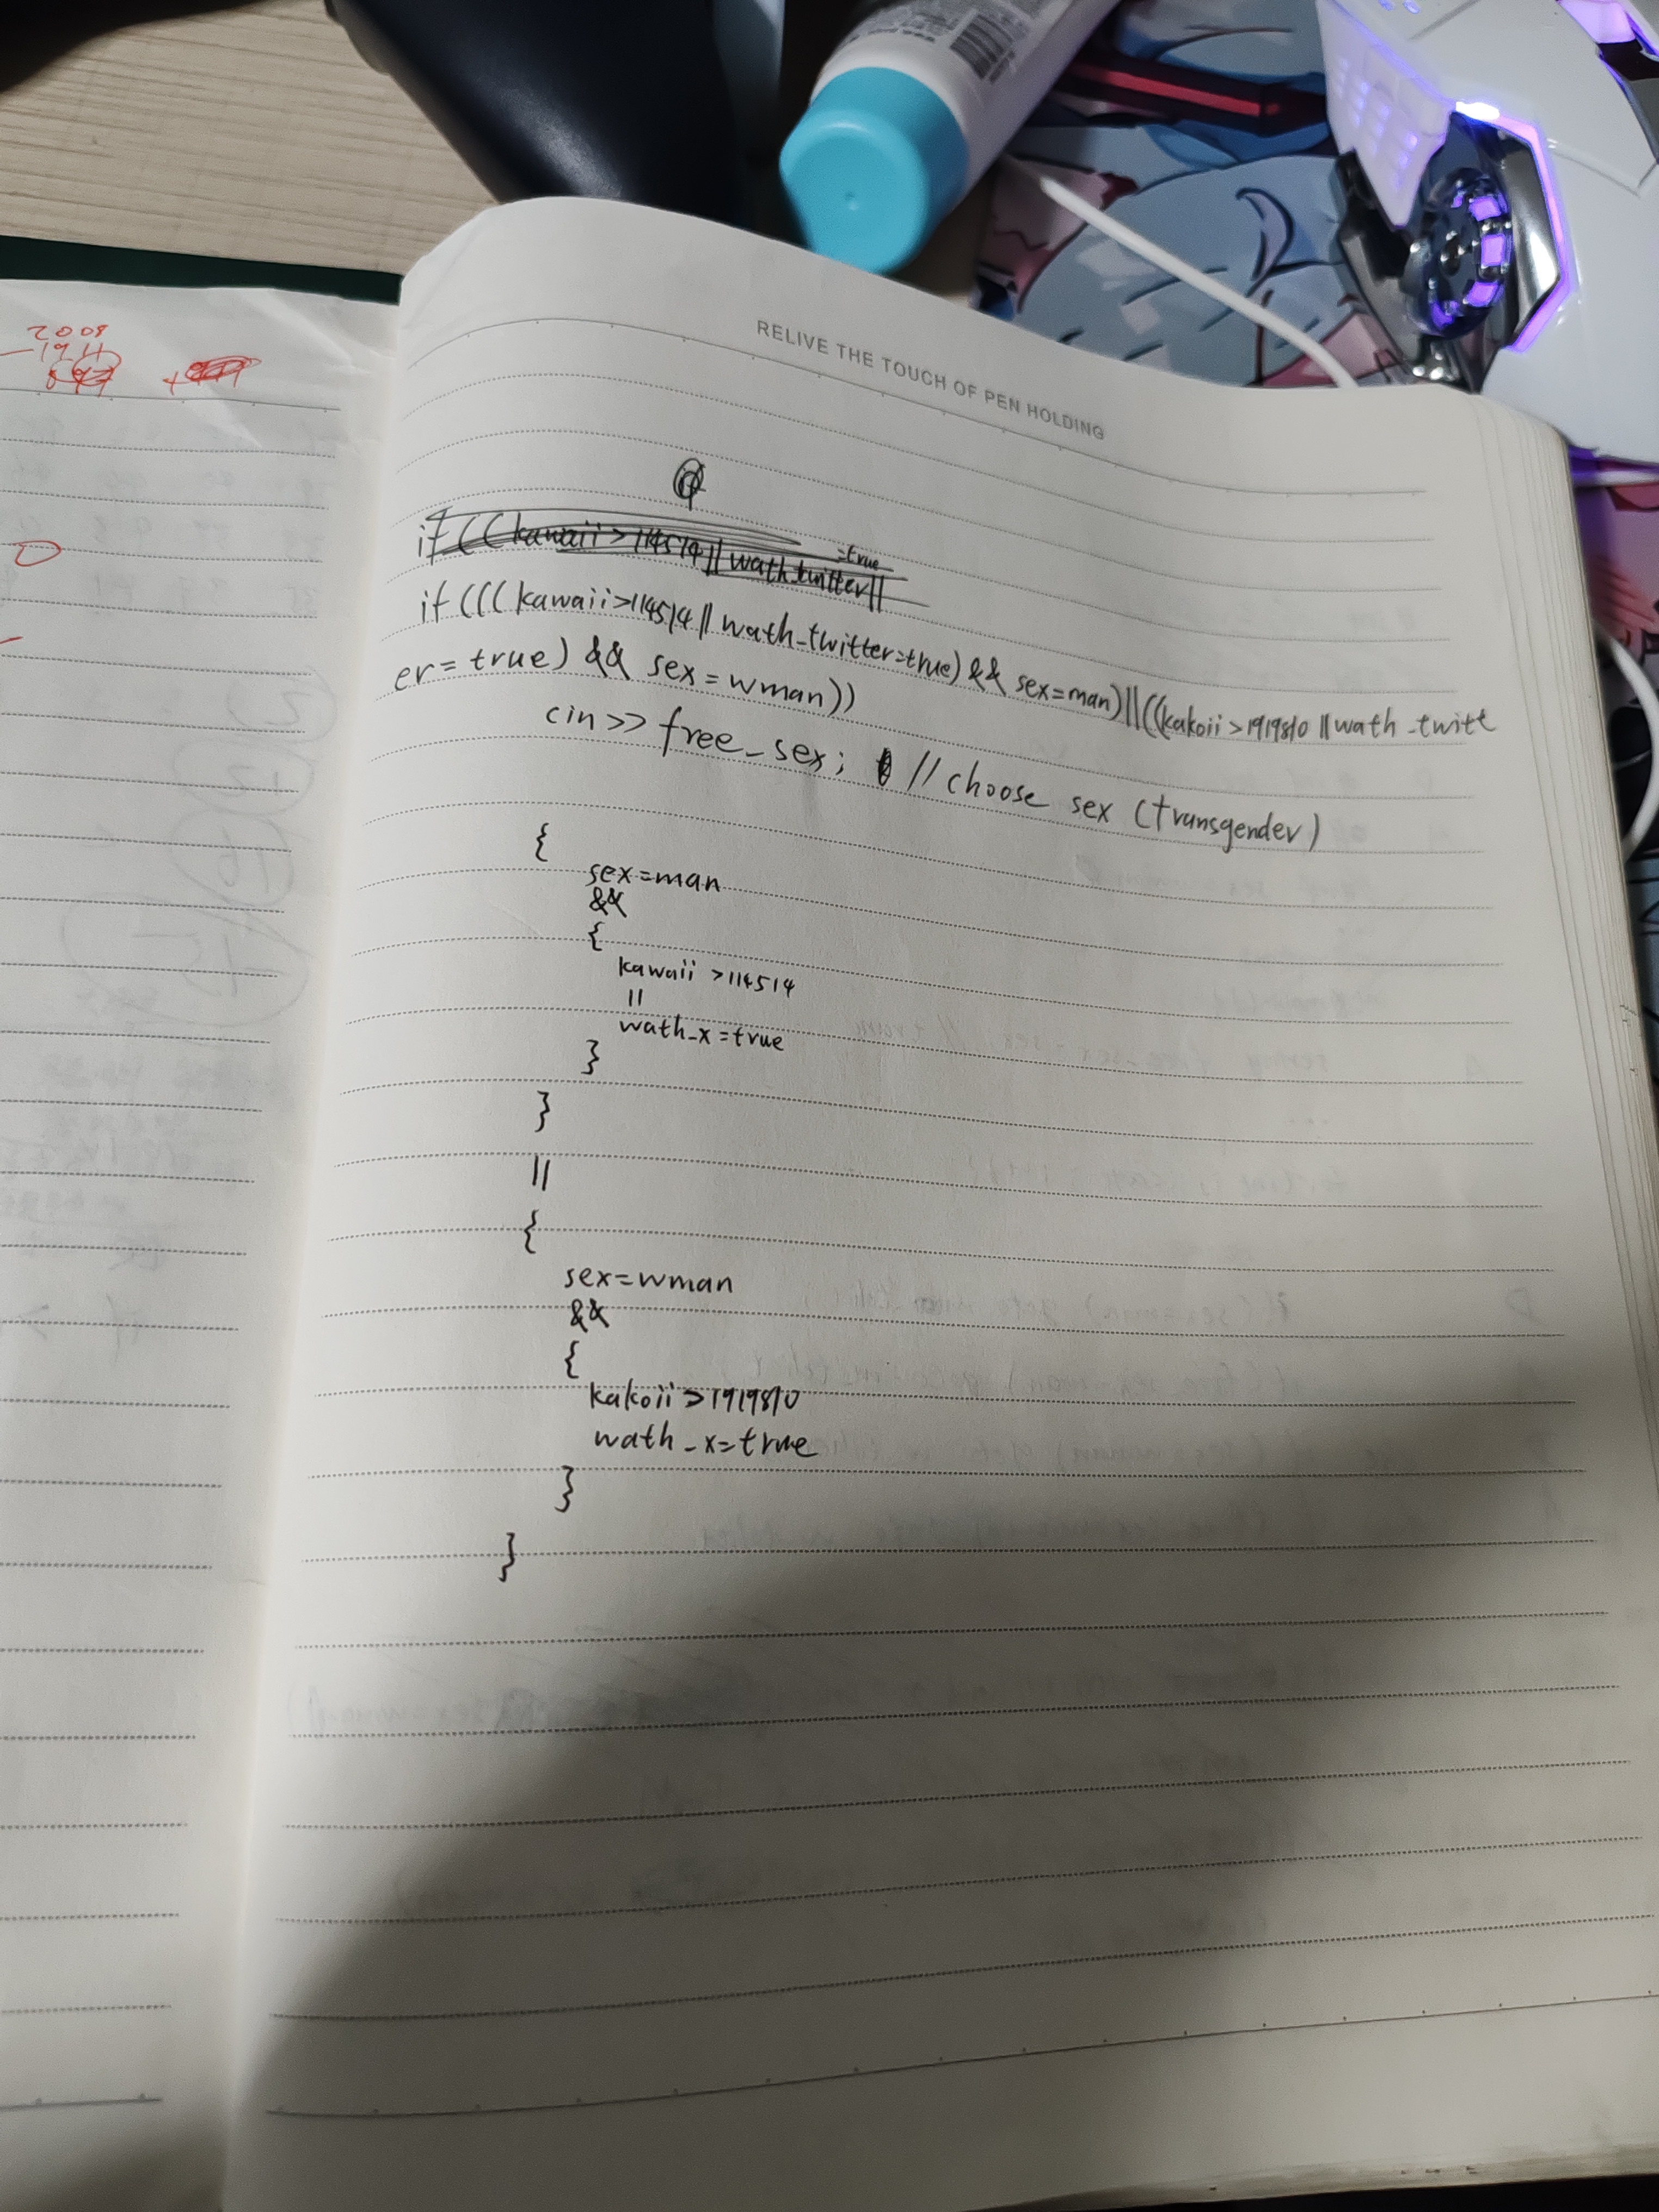 2008
1911
RELIVE THE TOUCH OF PEN HOLDING
if ((kawaii>114514||wath_twitter=true||
if (((kawaii>114514||wath_twitter=true)&& sex=man)||((kakoii>1919810||wath_twitt
er=true) && sex=wman))
cin>>free_sex; //choose sex (transgender)
{
sex=man
&&
{
kawaii >114514
||
wath_x=true
}
}
||
{
sex=wman
&&
{
kakoii>1919810
wath_x=true
}
}